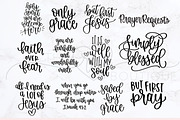 holy
only
grace
but first
Jesus
Prayer Requests
faith
over
fear
you are
fearfully
and
wonderfully
made
It is
Well
with my
Soul
Simply
blessed
all I need is
a lot of
Jesus
when you go
through deep waters
I will be with you
Isaiah 43:2
saved
by
grace
but first
pray